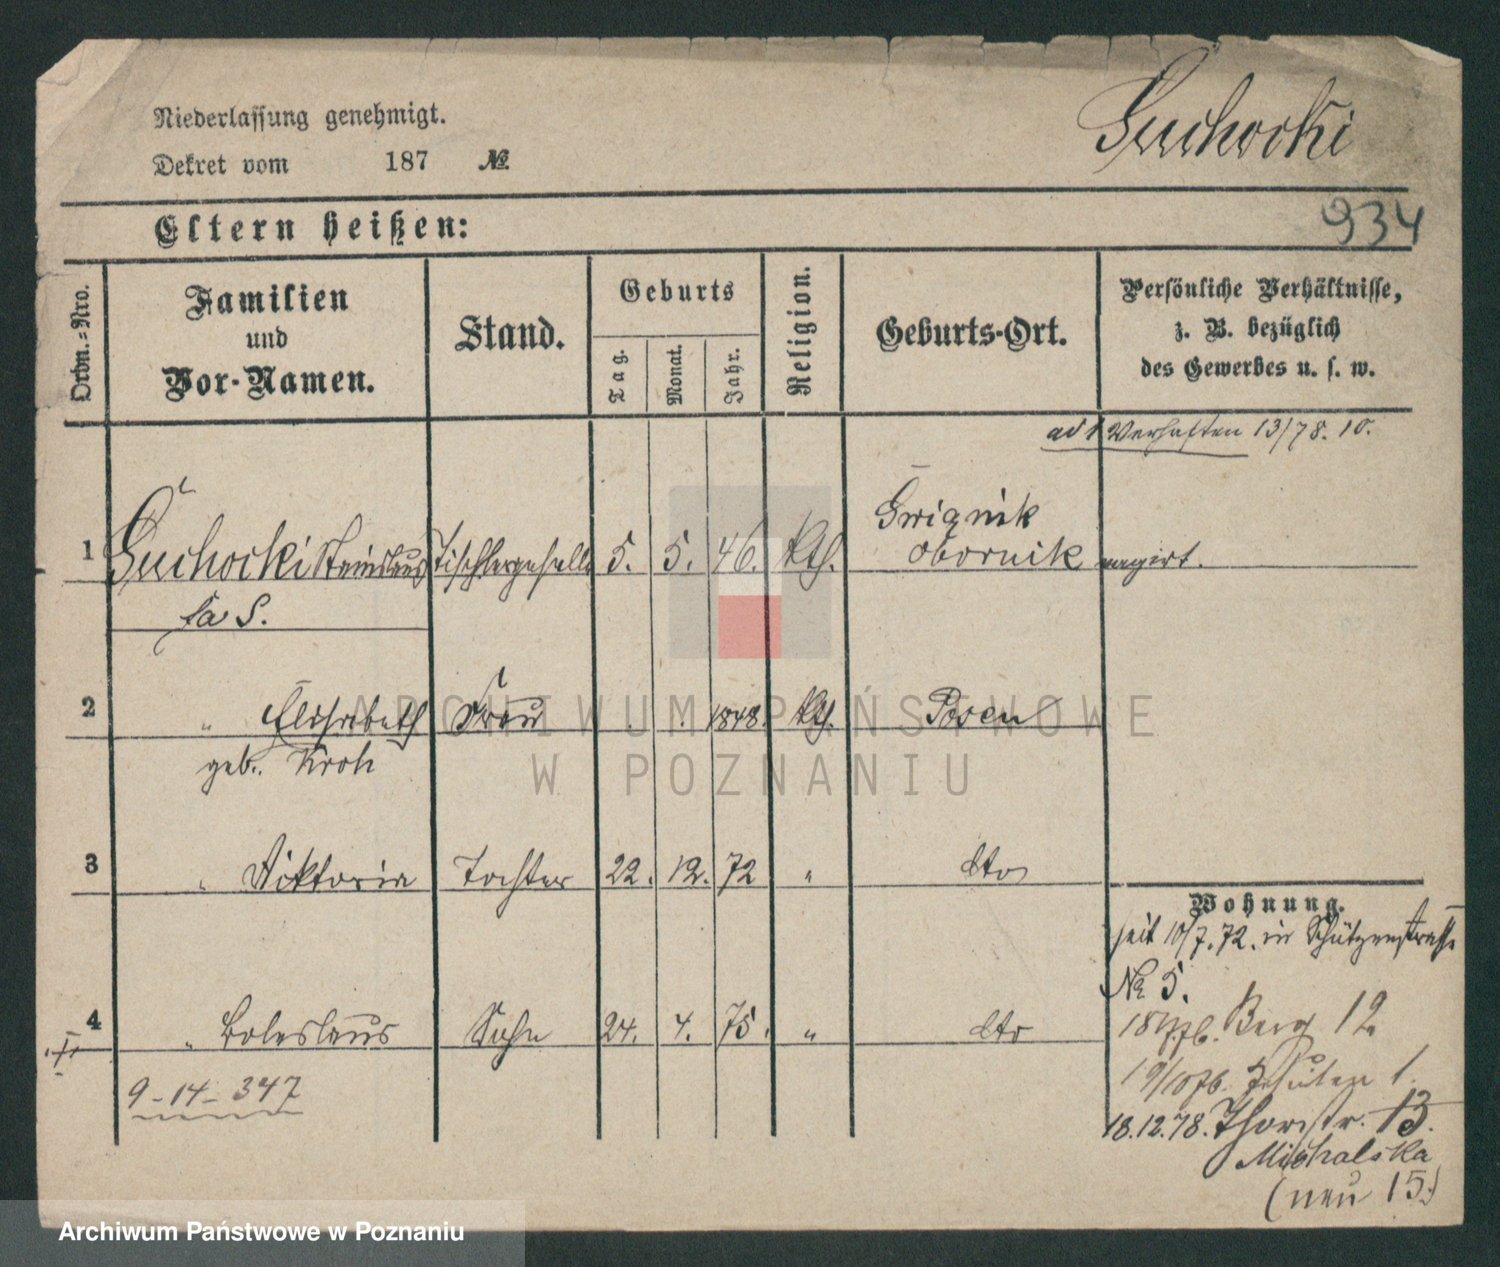 Niederlassung genehmigt.
Dekret vom 187 №
Suchocki
934
Eltern heißen:
Ordn.-Nro.
Familien
und
Vor-Namen.
Stand.
Geburts
Tag.
Monat.
Jahr.
Religion.
Geburts-Ort.
Persönliche Verhältnisse,
z. B. bezüglich
des Gewerbes u. s. w.
ad 1 13/78. 10.
1 Suchocki Stanislaus Tischlergeselle 5. 5. 46. kth. Obornik
2 " Elisabeth Frau 1848. kth. Posen
geb. Kroh
3 " Viktoria Tochter 22. 12. 72 " dto
4 " Boleslaus Sohn 24. 4. 75. " dto
9-14-347
Wohnung.
seit 10/7.72. in Schützenstrasse
№ 5.
Berg 12
19/10 76. 1.
18.12.78. Thorstr. 13.
Michalska
(neu 15.)
ARCHIWUM PAŃSTWOWE
W POZNANIU
Archiwum Państwowe w Poznaniu